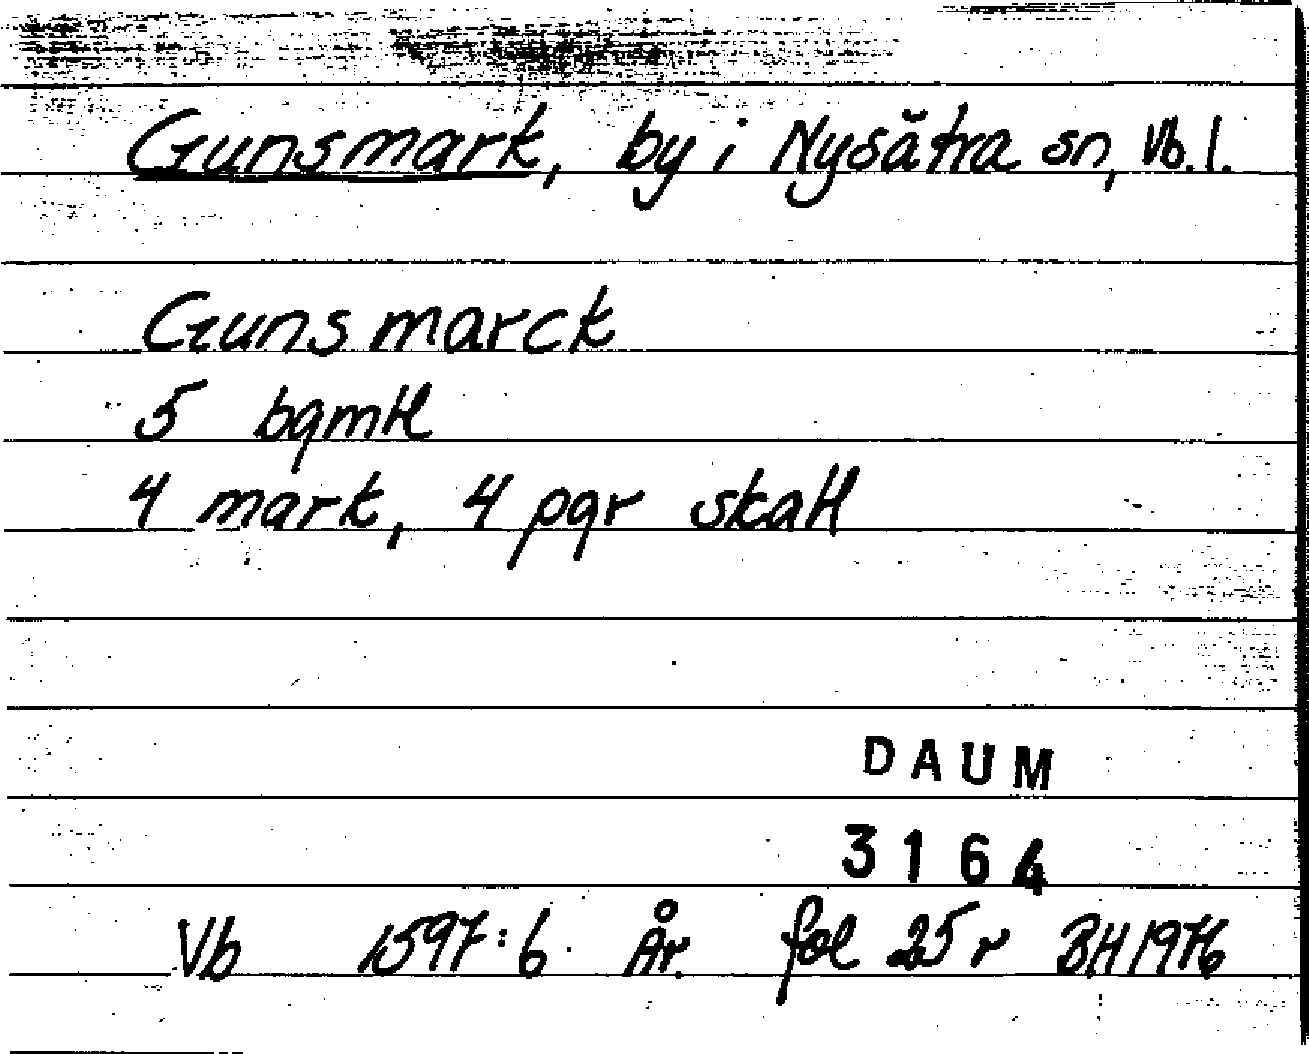 Gunsmark, by i Nysätra sn, Vb. l.
Gunsmarck
5 bqmtl
4 mark, 4 pqr skatt
DAUM
3164
Vb 1597:6 År. fol 25 r BH 1976